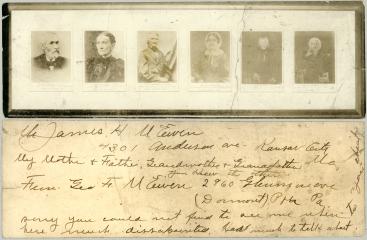 Mr James H McEwen
4301 Anderson ave - Kansas City
My Mother & Father, Grandmother & Grandfather Mo
From Geo F. McEwen 2960 Glenmore ave
(Dormont) Pgh Pa
sorry you could not find to see me when
here much disappointed, had much to talk about.